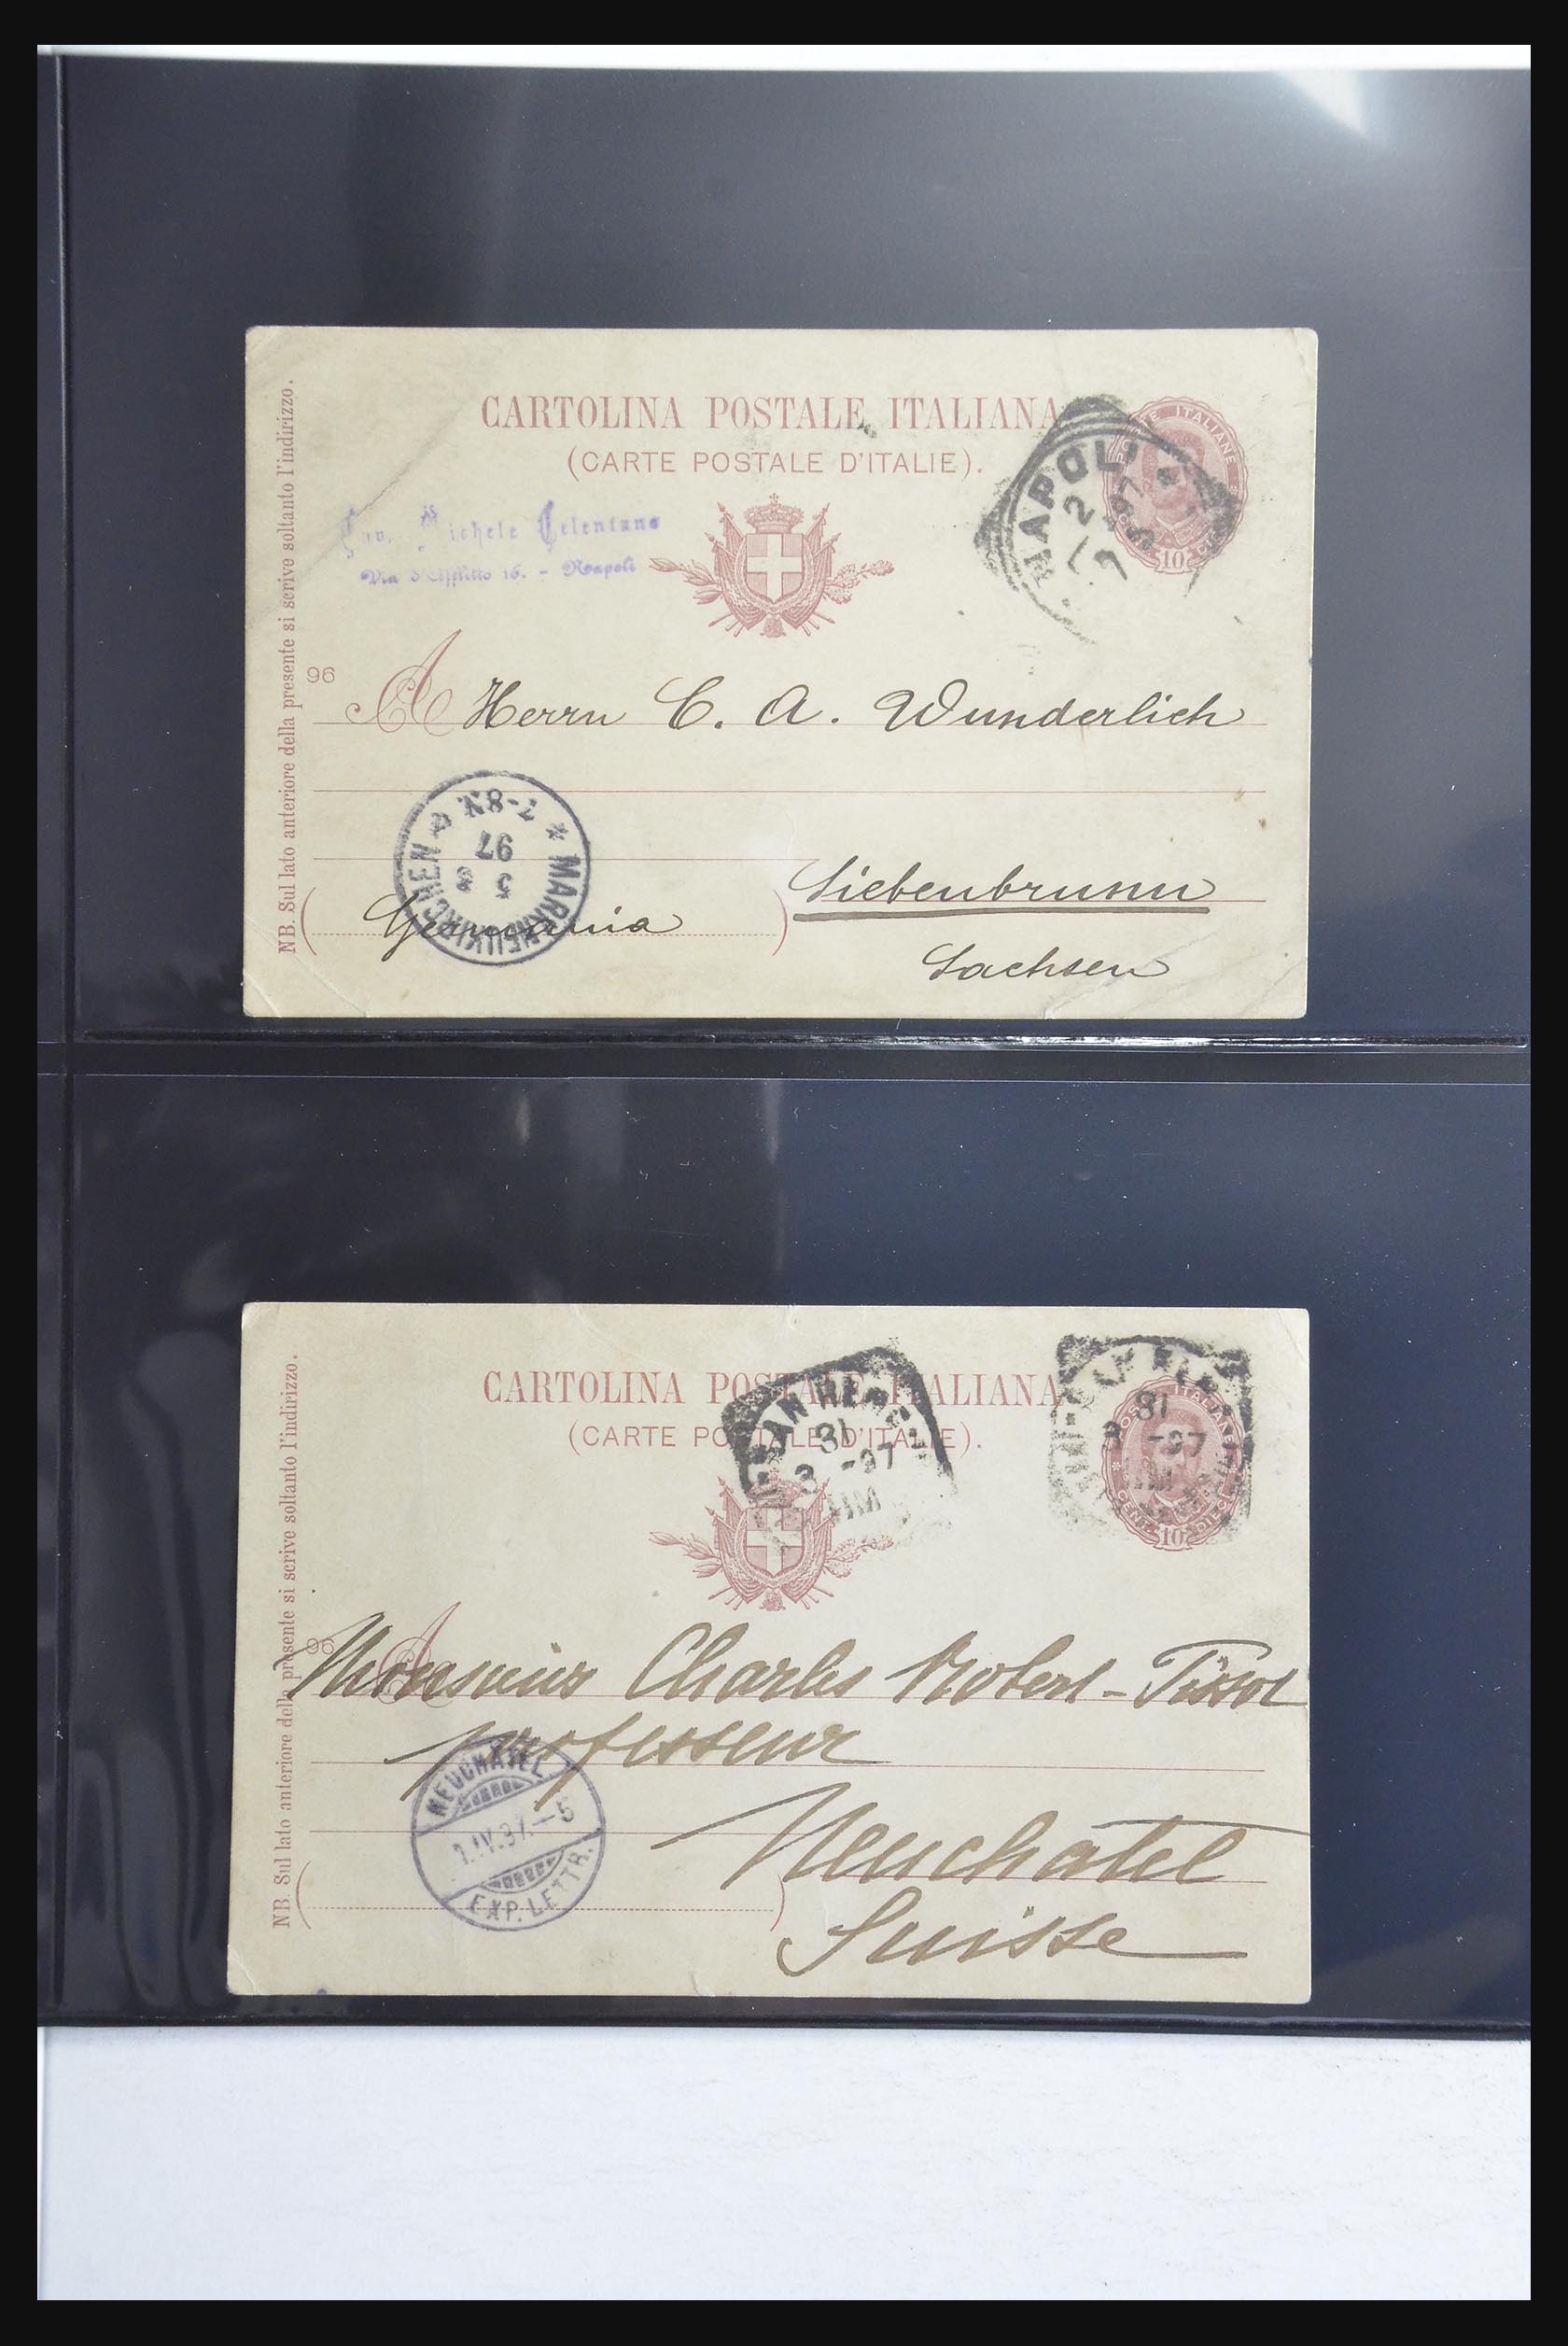 CARTOLINA POSTALE ITALIANA
(CARTE POSTALE D'ITALIE).
Michele Celentano
Via d'Afflitto 16. - Napoli
NAPOLI
POSTE ITALIANE
10
NB. Sul lato anteriore della presente si scrive soltanto l'indirizzo.
96
A Herrn C. A. Wunderlich
MARKNEUKIRCHEN
5 3
97
7-8N.
Siebenbrunn
(Germania)
Sachsen
CARTOLINA POSTALE ITALIANA
(CARTE POSTALE D'ITALIE).
31
3 -97
31
3 -97
POSTE ITALIANE
CENT. 10 DIECI
NB. Sul lato anteriore della presente si scrive soltanto l'indirizzo.
96
A
Monsieur Charles Robert-Tissot
professeur
NEUCHATEL
1.IV.97.-5
EXP. LETTR.
Neuchâtel
Suisse